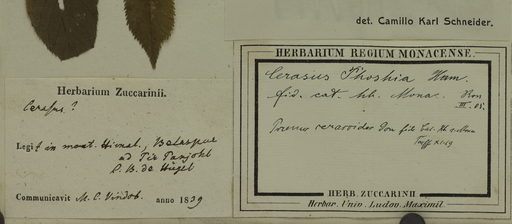 det. Camillo Karl Schneider.
HERBARIUM REGIUM MONACENSE.
Cerasus Phoshia Ham.
fid. cat. hb. Monac.
III. 05.
Prunus cerasoides Don fid. Cat.
Herbarium Zuccarinii.
Cerasus?
Legit in mont. Himal., Belaspur
ad Pir Panjohl
C. B. de Hügel
Communicavit M. C. Vindob. anno 1839
HERB. ZUCCARINII
Herbar. Univ. Ludov. Maximil.